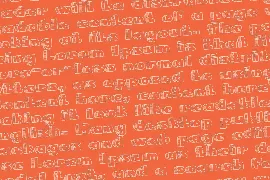 reader will be distra
readable content of a page
looking at its layout. The po
using Lorem Ipsum is that it
more-or-less normal distrib
letters, as opposed to using
content here, content here',
making it look like readable
English. Many desktop publis
packages and web page edito
use Lorem Ipsum as their de
model text, and a search fo